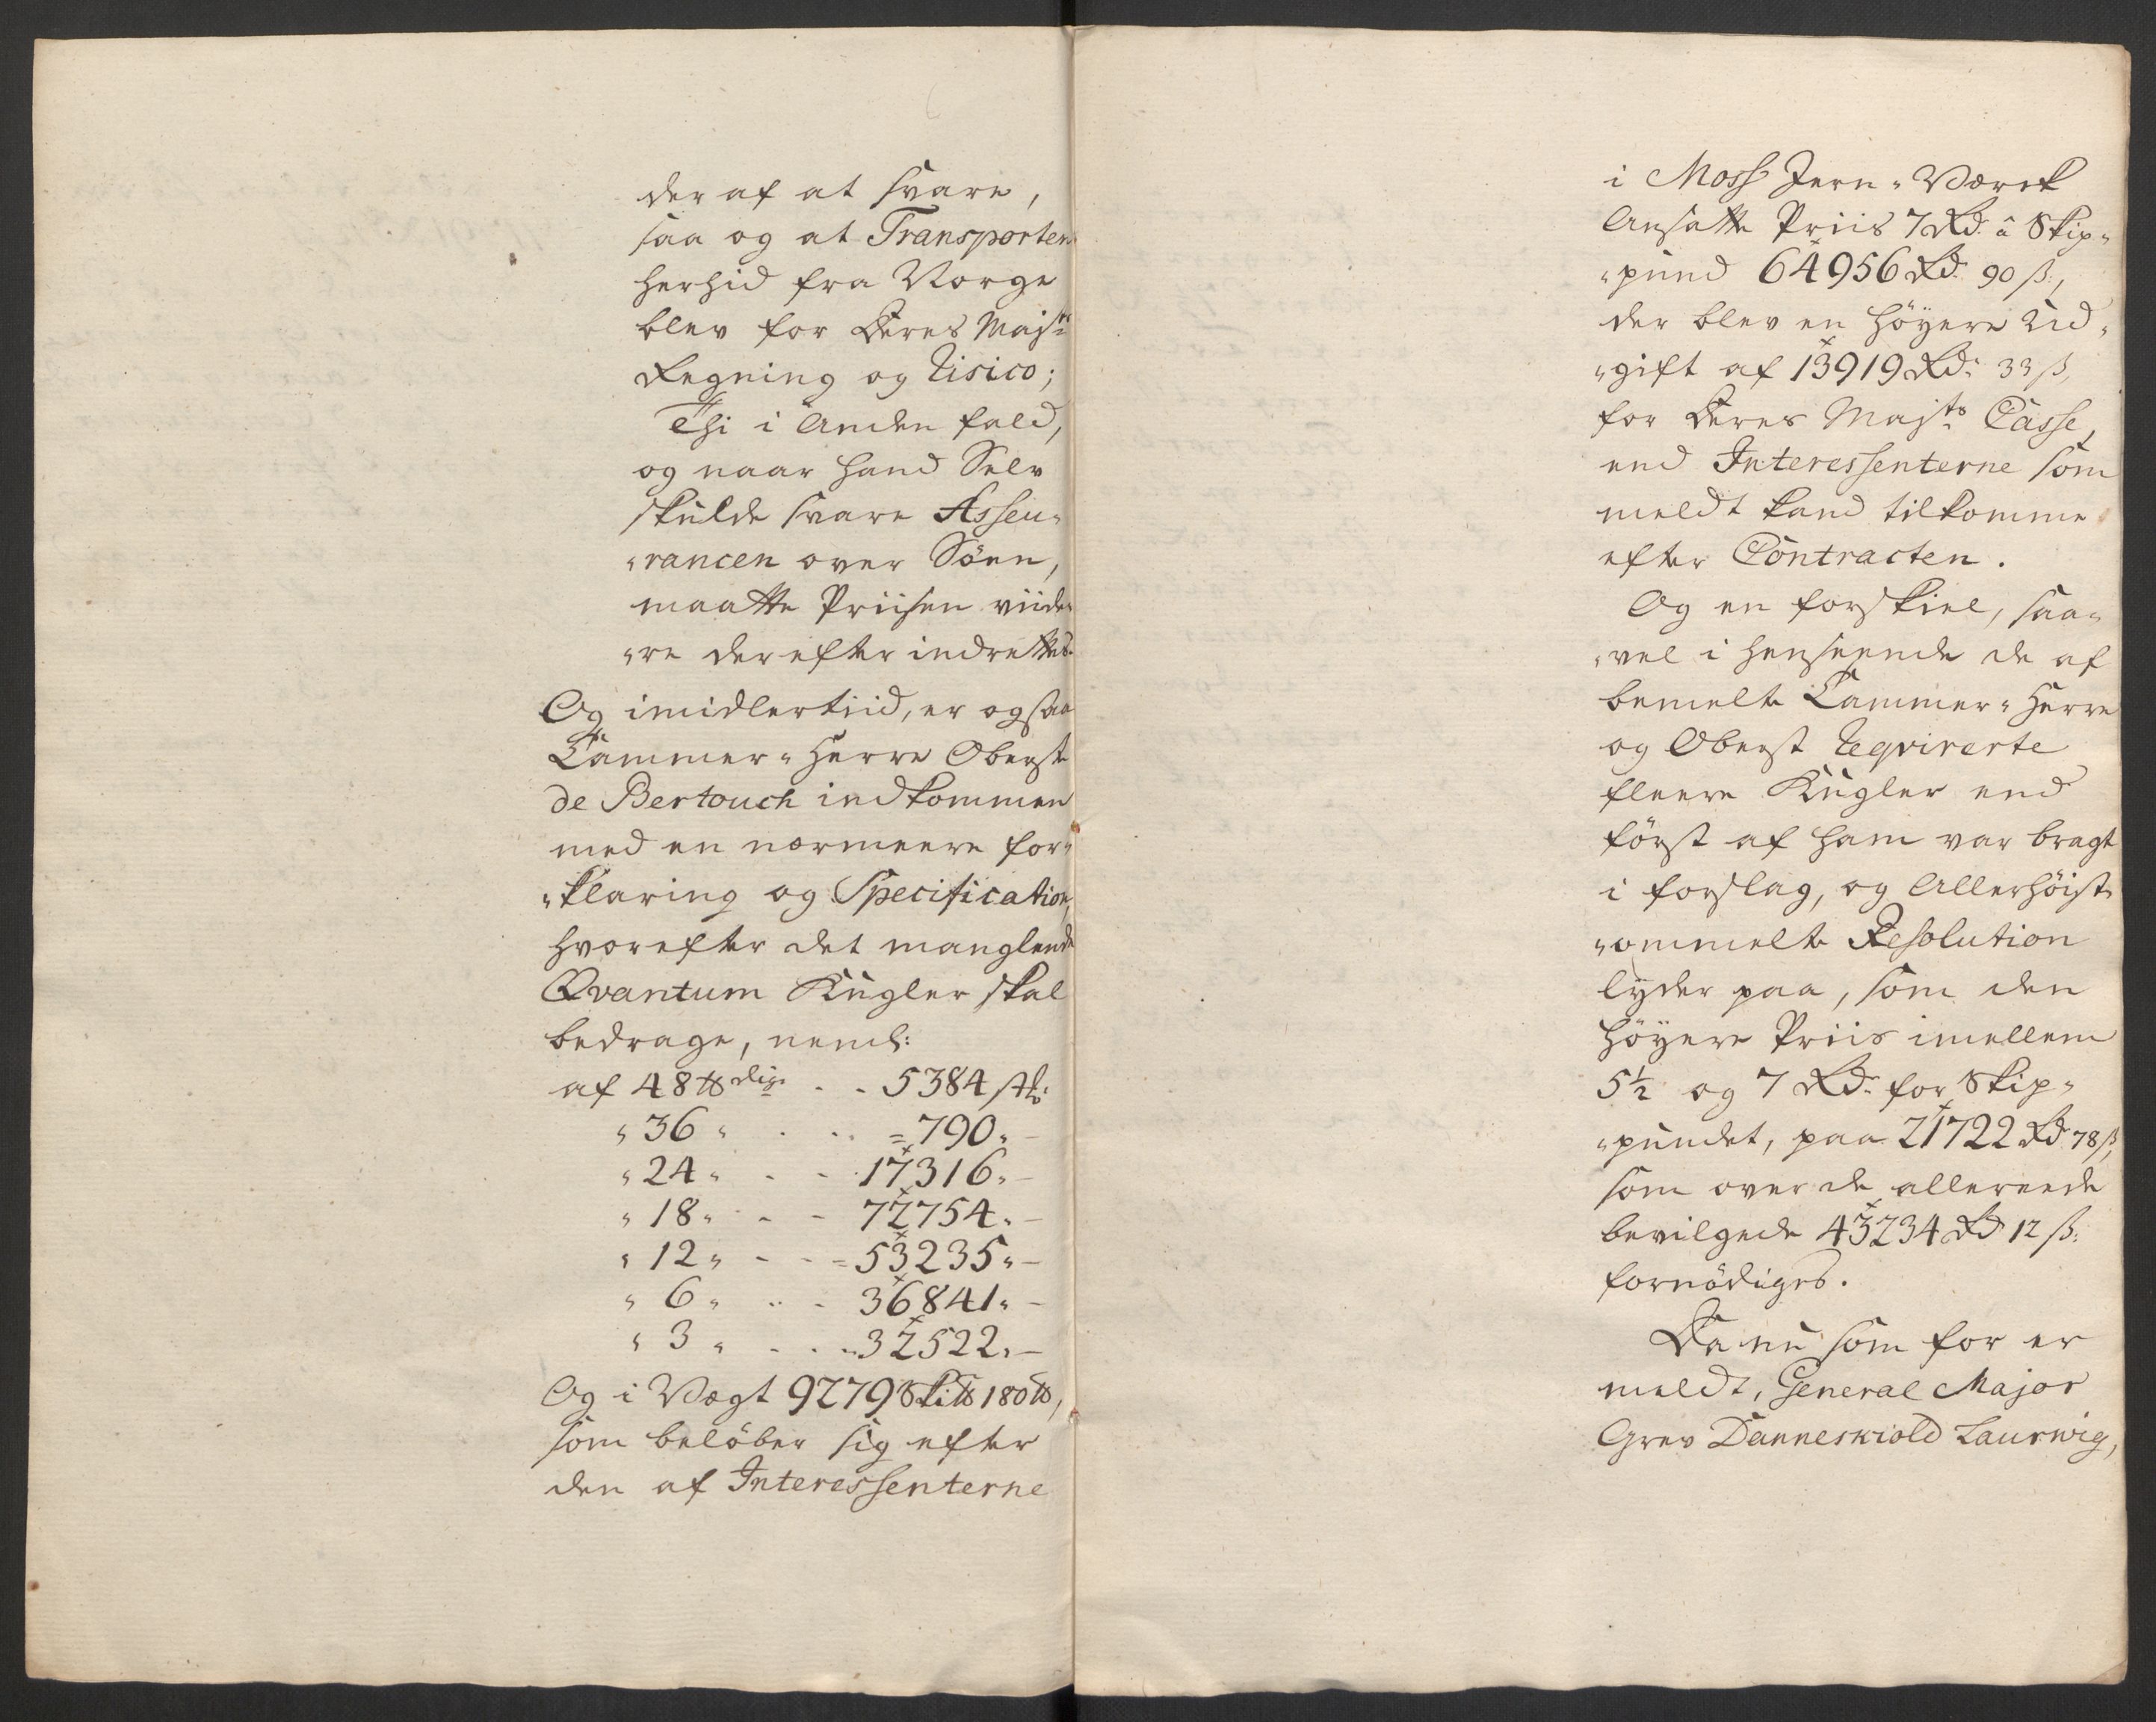 der af at svare,
saa og at Transporten
herhid fra Norge
blev for Deres Majts
Regning og Risico;
Thi i Anden fald,
og naar hand Selv
skulde svare Asseu-
"rancen over Söen,
maatte Priisen viide-
"re derefter indrettes.
Og imidlertiid, er ogsaa
Cammer-Herre Oberste
de Bertouch indkommen
med en nærmeere for-
"klaring og Specification,
hvorefter det manglende
Qvantum Kugler skal
bedrage, neml:
af 48 ℔dige . . 5384 stk:
" 36 " . . = 790 " -
" 24 " - - 17316 " -
" 18 " - - 72754 " -
" 12 " - - = 53235 " -
" 6 " .. - 36841 " -
" 3 " - . . 32522 " -
Og i Vægt 9279 Ski℔ 180 ℔,
som belöber sig efter
den af Interessenterne
i Moss Jern-Værck
Ansatte Priis 7 Rd. â Skip-
"pund 64956 Rd. 90 ß,
der blev en höyere Ud-
"gift af 13919 Rd: 33 ß,
for Deres Majts Casse,
end Interessenterne som
meldt kand tilkomme
efter Contracten.
Og en forskiel, saa-
"vel i henseende de af
bemelte Cammer-Herre
og Oberst Reqvirerte
fleere Kugler end
först af ham var bragt
i forslag, og Allerhöist-
"ommelte Resolution
lyder paa, som den
höyere Priis imellem
5½ og 7 Rd. for Skip-
"pundet, paa 21722 Rd 78 ß,
som over de allereede
bevilgede 43234 Rd 12 ß.
fornödiges.
Da nu som for er
meldt, General Major
Grev Danneskiold Laurwig,